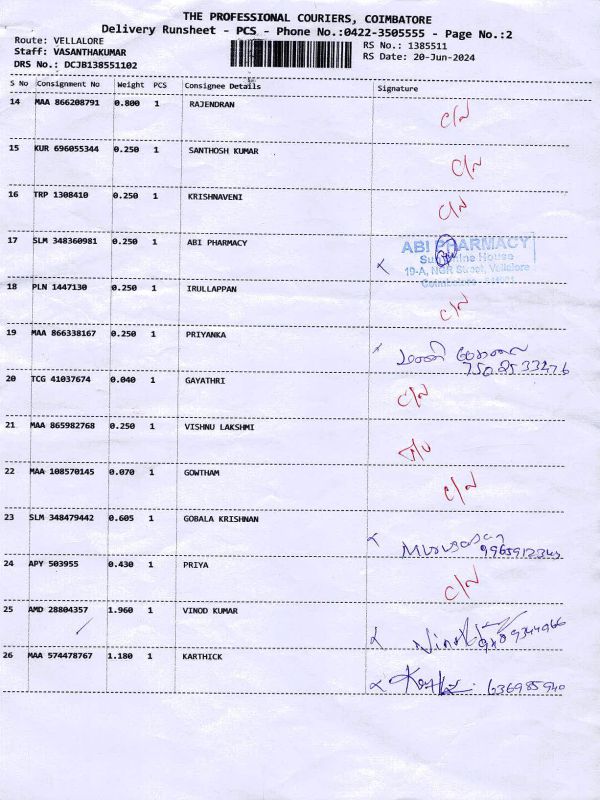 THE PROFESSIONAL COURIERS, COIMBATORE
Delivery Runsheet - PCS - Phone No.:0422-3505555 - Page No.:2
Route: VELLALORE
RS No.: 1385511
Staff: VASANTHAKUMAR
RS Date: 20-Jun-2024
DRS No.: DCJB138551102
S No Consignment No Weight PCS Consignee Details Signature
14 MAA 866208791 0.800 1 RAJENDRAN C/N
15 KUR 696055344 0.250 1 SANTHOSH KUMAR C/N
16 TRP 1308410 0.250 1 KRISHNAVENI C/N
17 SLM 348360981 0.250 1 ABI PHARMACY
ABI PHARMACY
Sunshine House
19-A, NGR Street, Vellalore
18 PLN 1447130 0.250 1 IRULLAPPAN C/N
19 MAA 866338167 0.250 1 PRIYANKA
20 TCG 41037674 0.040 1 GAYATHRI C/N
21 MAA 865982768 0.250 1 VISHNU LAKSHMI
22 MAA 108570145 0.070 1 GOWTHAM C/N
23 SLM 348479442 0.605 1 GOBALA KRISHNAN
24 APY 503955 0.430 1 PRIYA C/N
25 AMD 28804357 1.960 1 VINOD KUMAR
26 MAA 574478767 1.180 1 KARTHICK